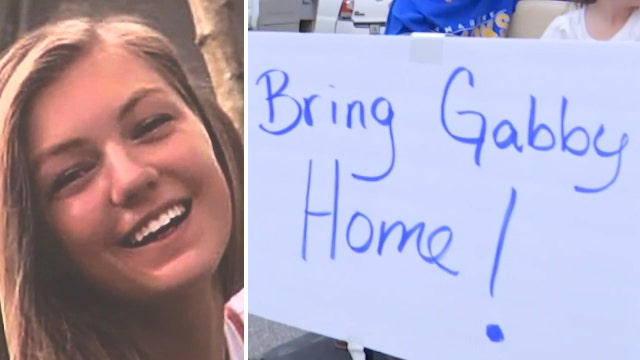 Bring Gabby
Home!